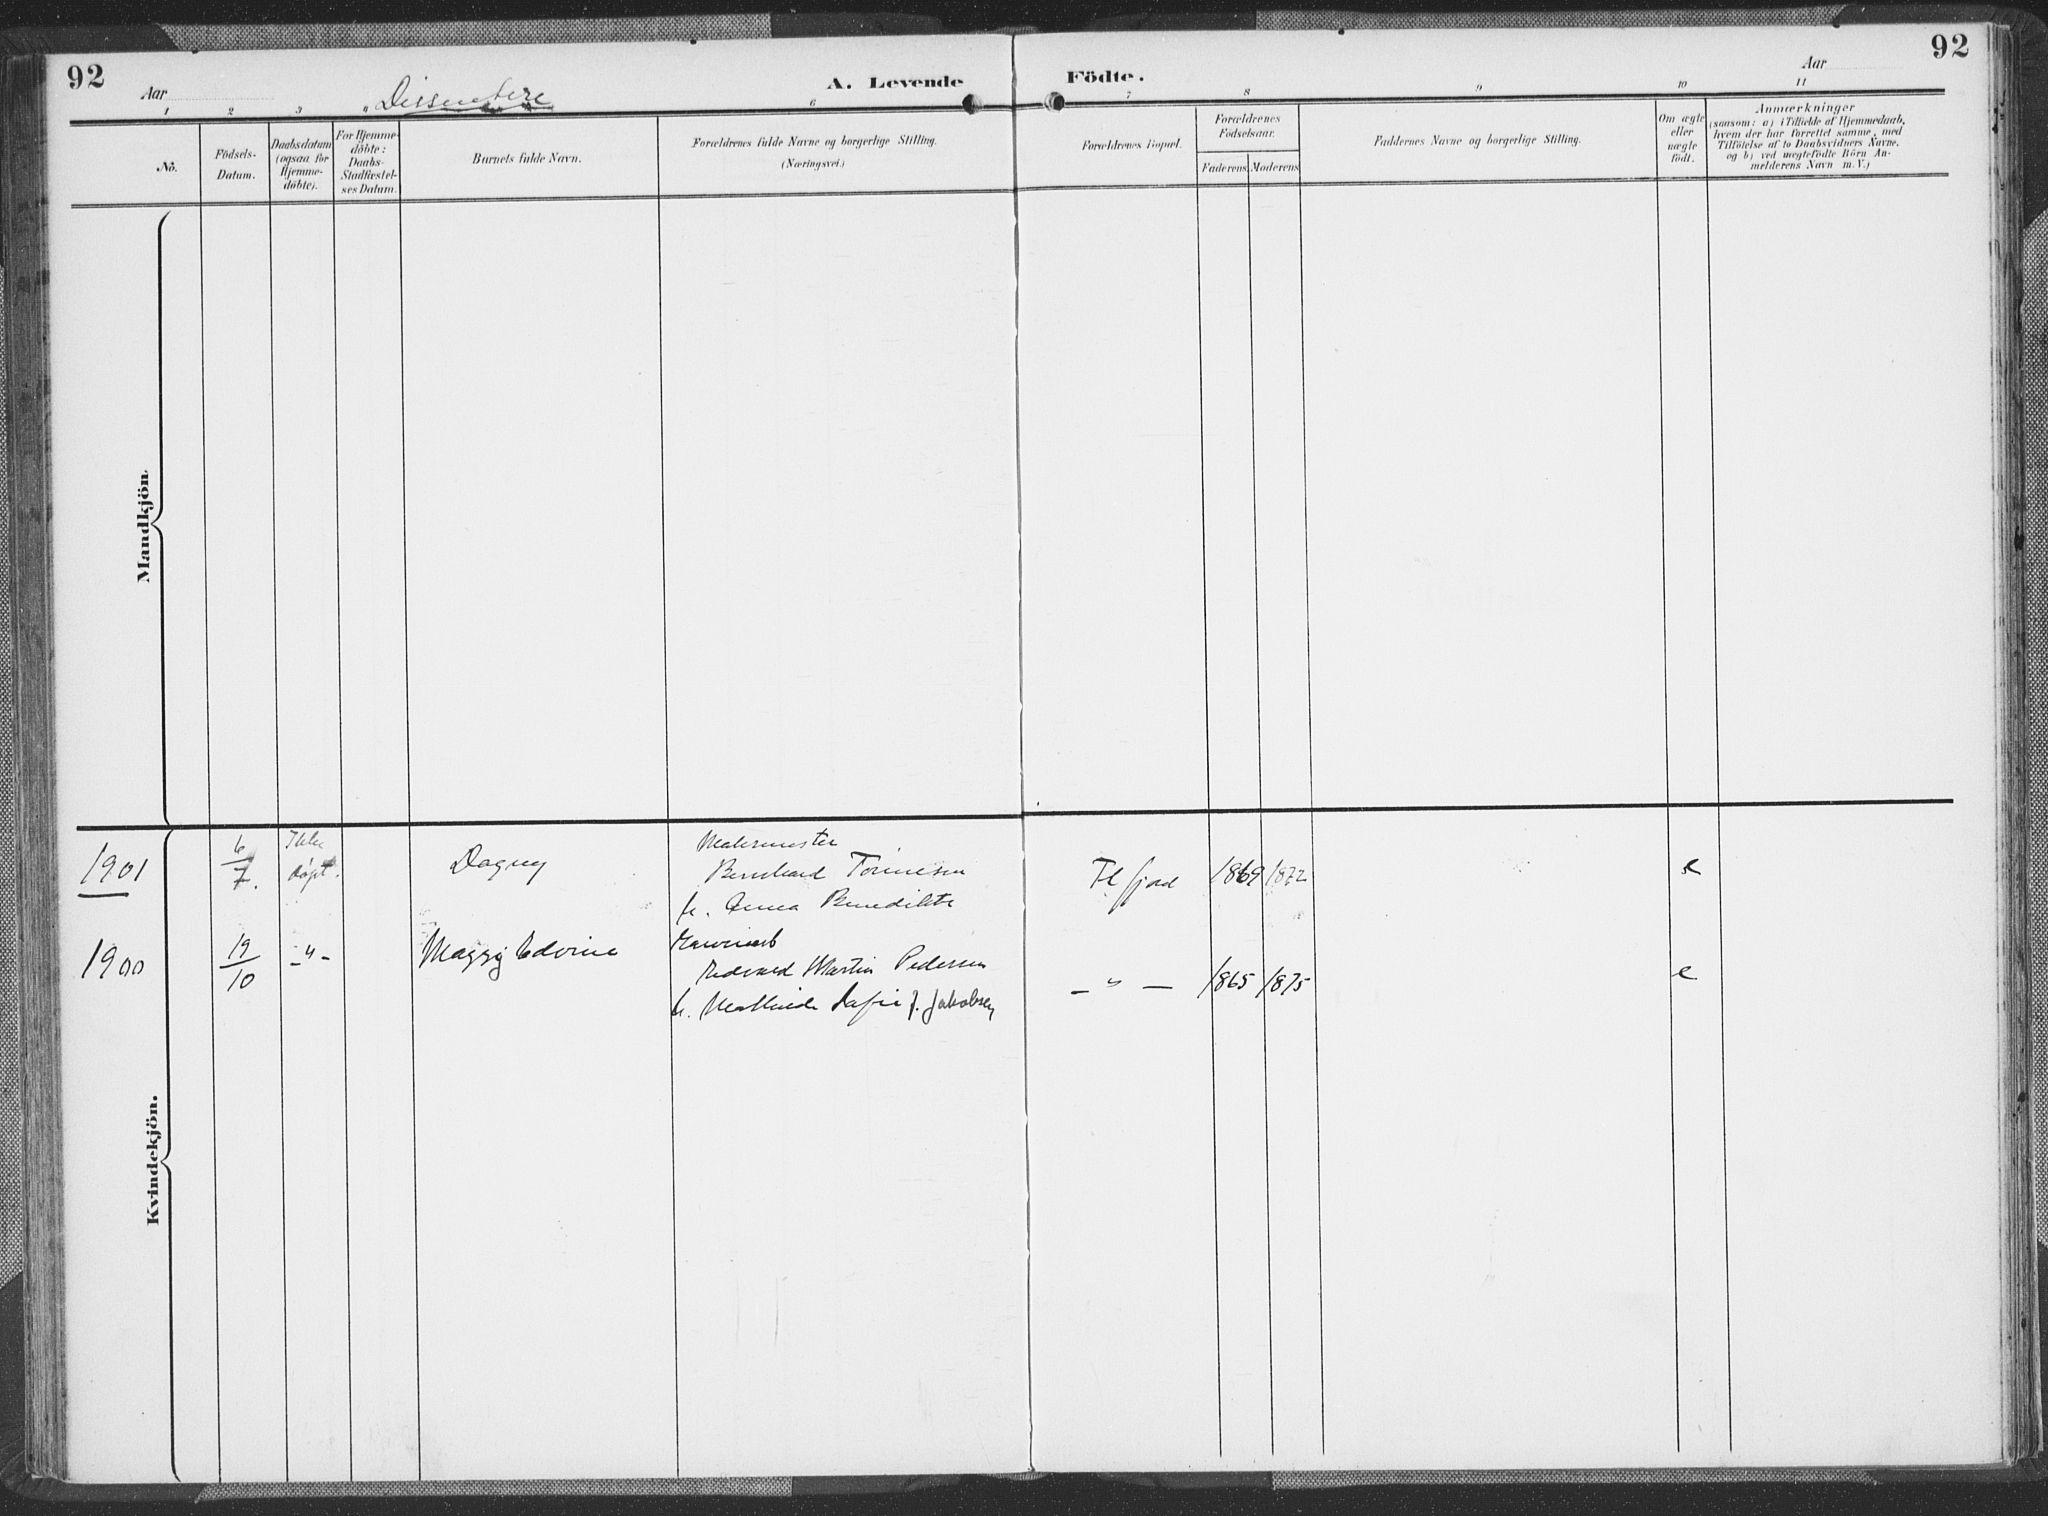 92
Aar
Dissentere
A. Levende
Födte.
Aar
92
1 2 3 4 6 7 8 9 10 11
No.
Födsels-
Datum.
Daabsdatum
(ogsaa for
Hjemme-
döbte).
For Hjemme-
döbte:
Daabs-
Stadfæstel-
ses Datum.
Barnets fulde Navn.
Forældrenes fulde Navne og borgerlige Stilling.
(Næringsvei.)
Forældrenes Bopæl.
Forældrenes
Födselsaar.
Faderens Moderens
Faddernes Navne og borgerlige Stilling.
Om ægte
eller
uægte
födt.
Anmærkninger
(saasom: a) i Tilfælde af Hjemmedaab,
hvem der har forrettet samme, med
Tilföielse af to Daabsvidners Navne,
og b) ved uægtefödte Börn An-
melderens Navn m. V.)
Mandkjön.
Kvindekjön.
1901
6
7.
Ikke
døpt.
Dagny
Malermester
Bernhard Tönnesen
h. Anna Benedikte
Flfjord 1869 1872
e
1900
19
10
-"-
Maggy Edvine
Martin Pedersen
h. Mathilde f. Jakobsen
- " - 1865 1875
e